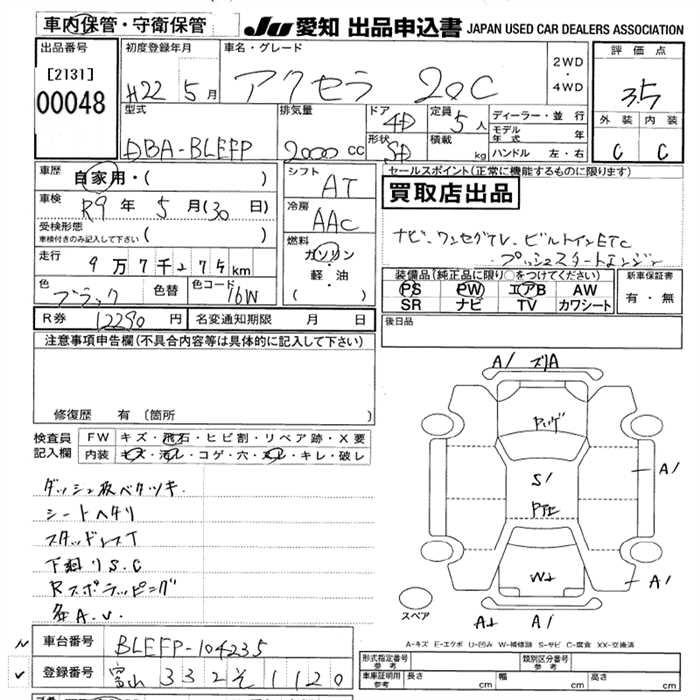 車内保管・守衛保管
JU 愛知 出品申込書 JAPAN USED CAR DEALERS ASSOCIATION
出品番号
[2131]
00048
初度登録年月
H22 5月
車名・グレード
アクセラ 20C
2WD
・
4WD
評価点
3.5
外装 内装
C C
型式
DBA-BLEFP
排気量
2000 CC
ドア
4D
形状
SD
定員
5人
積載
kg
ディーラー・並行
モデル年式 年
ハンドル 左・右
車歴
自家用・( )
車検
R9年 5月(30日)
受検形態
車検付きのみ記入して下さい ( )
走行
9万7千275km
色
ブラック 色替
色コード
16W
シフト
AT
冷房
AAC
燃料
ガソリン
・
軽・油
( )
セールスポイント(正常に機能するものに限ります)
買取店出品
ナビ・ワンセグTV・ビルトインETC
・プッシュスタートエンジン
装備品(純正品に限り○をつけてください)
PS PW エアB AW
SR ナビ TV カワシート
新車保証書
有・無
R券 12290円
名変通知期限 月 日
後日品
注意事項申告欄(不具合内容等は具体的に記入して下さい)
修復歴 有 〔箇所
検査員記入欄
FW キズ・飛石・ヒビ割・リペア跡・X要
内装 キズ・汚レ・コゲ・穴・スレ・キレ・破レ
ダッシュ板ベタツキ
シートヘタリ
スタッドレスT
下廻りS.C
Rスポラッピング
各A.U.
A1 ズリA
S1
A1
W2
A1
A2 A1
スペア
A-キズ E-エクボ U-凹み W-補修跡 S-サビ C-腐食 XX-交換済
車台番号 BLEFP-104235
登録番号 富山 332 そ 1120
形式指定番号
参考
類別区分番号
参考
車庫証明用
参考
長さ cm
幅 cm
高さ cm